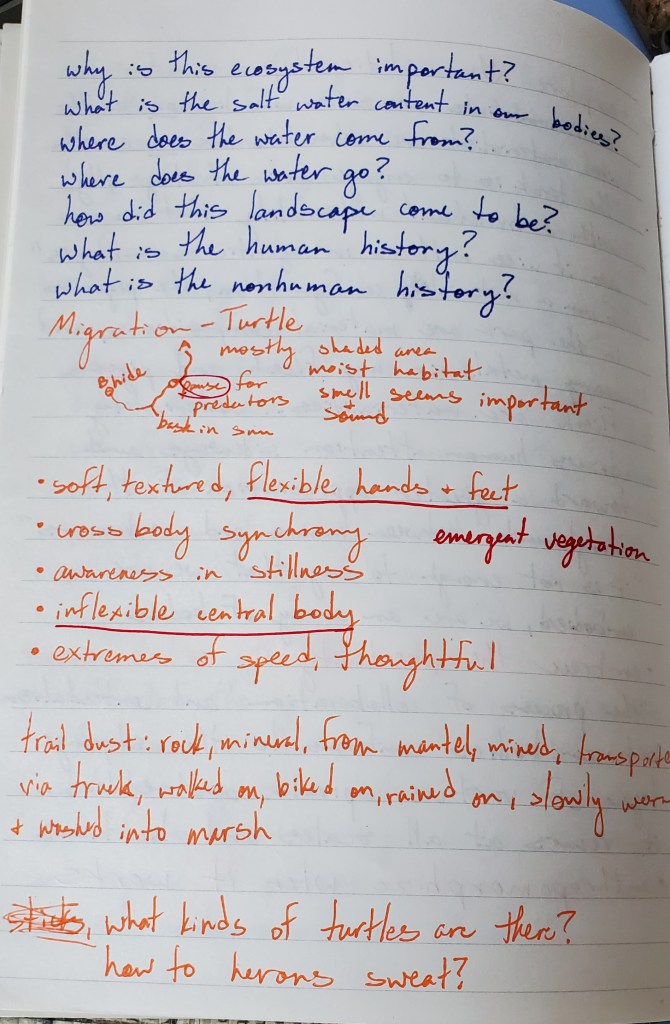 why is this ecosystem important?
what is the salt water content in our bodies?
where does the water come from?
where does the water go?
how did this landscape come to be?
what is the human history?
what is the nonhuman history?
Migration - Turtle
hide
pause for
predators
bask in sun
mostly shaded area
moist habitat
smell seems important
+
sound
• soft, textured, flexible hands + feet
• cross body synchrony
emergent vegetation
• awareness in stillness
• inflexible central body
• extremes of speed, thoughtful
trail dust: rock, mineral, from mantel, mined, transporte
via truck, walked on, biked on, rained on, slowly wor
+ washed into marsh
what kinds of turtles are there?
how to herons sweat?